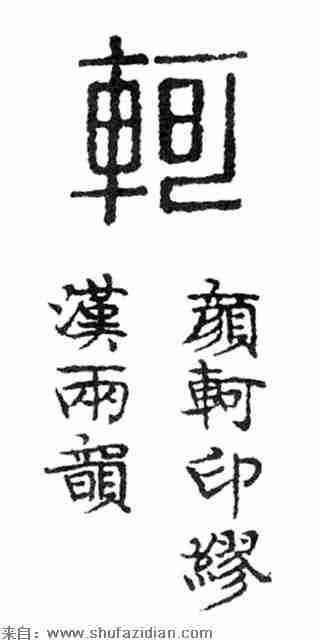 軻
顔軻印繆
漢兩韻
来自：www.shufazidian.com